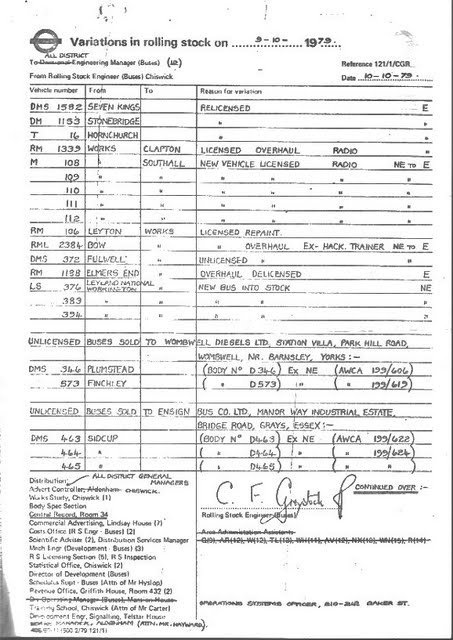 Variations in rolling stock on 9-10- 1979.
ALL DISTRICT
To Divisional Engineering Manager (Buses) (12)
Reference 121/1/CGR
From Rolling Stock Engineer (Buses) Chiswick
Date 10-10-79.
Vehicle number From To Reason for variation
DMS 1582 SEVEN KINGS RELICENSED E
DM 1153 STONEBRIDGE " "
T 16 HORNCHURCH " "
RM 1339 WORKS CLAPTON LICENSED OVERHAUL RADIO "
M 108 " SOUTHALL NEW VEHICLE LICENSED RADIO NE TO E
109 " " " " "
110 " " " " "
111 " " " " "
112 " " " " "
RM 106 LEYTON WORKS LICENSED REPAINT.
RML 2384 BOW " " OVERHAUL EX-HACK. TRAINER NE TO E
DMS 372 FULWELL " UNLICENSED "
RM 1188 ELMERS END " OVERHAUL DELICENSED E
LS 376 LEYLAND NATIONAL WORKINGTON " NEW BUS INTO STOCK NE
383 " " " "
394 " " " "
UNLICENSED BUSES SOLD TO WOMBWELL DIESELS LTD, STATION VILLA, PARK HILL ROAD,
WOMBWELL, NR. BARNSLEY, YORKS :-
DMS 346 PLUMSTEAD (BODY Nº D346) EX NE (AWCA 199/606)
573 FINCHLEY ( " D573) " ( " 199/619)
UNLICENSED BUSES SOLD TO ENSIGN BUS CO. LTD, MANOR WAY INDUSTRIAL ESTATE,
BRIDGE ROAD, GRAYS, ESSEX :-
DMS 463 SIDCUP (BODY Nº D463) EX NE (AWCA 199/622)
464 " ( " D464) " ( " 199/624)
465 " ( " D465) " ( " " )
Distribution: ALL DISTRICT GENERAL MANAGERS
Advert Controller, Aldenham CHISWICK.
Works Study, Chiswick (1)
Body Spec Section
Central Record, Room 34
Commercial Advertising, Lindsey House (7)
Costs Office (R S Engr - Buses) (2)
Scientific Adviser (2), Distribution Services Manager
Mech Engr (Development - Buses) (3)
R S Licensing Section (5), R S Inspection
Statistical Office, Chiswick (2)
Director of Development (Buses)
Schedules Supt - Buses (Attn of Mr Hyslop)
Revenue Office, Griffith House, Room 432 (2)
Div Operating Manager (Buses), Mansion House
Training School, Chiswick (Attn of Mr Carter)
Development Engr, Signalling, Telstar House
MANAGER, ALDENHAM (ATTN. MR. HAYWARD).
CONTINUED OVER :-
Rolling Stock Engineer (Buses)
Area Administration Assistants
OPERATING SYSTEMS OFFICER, BAKER ST.